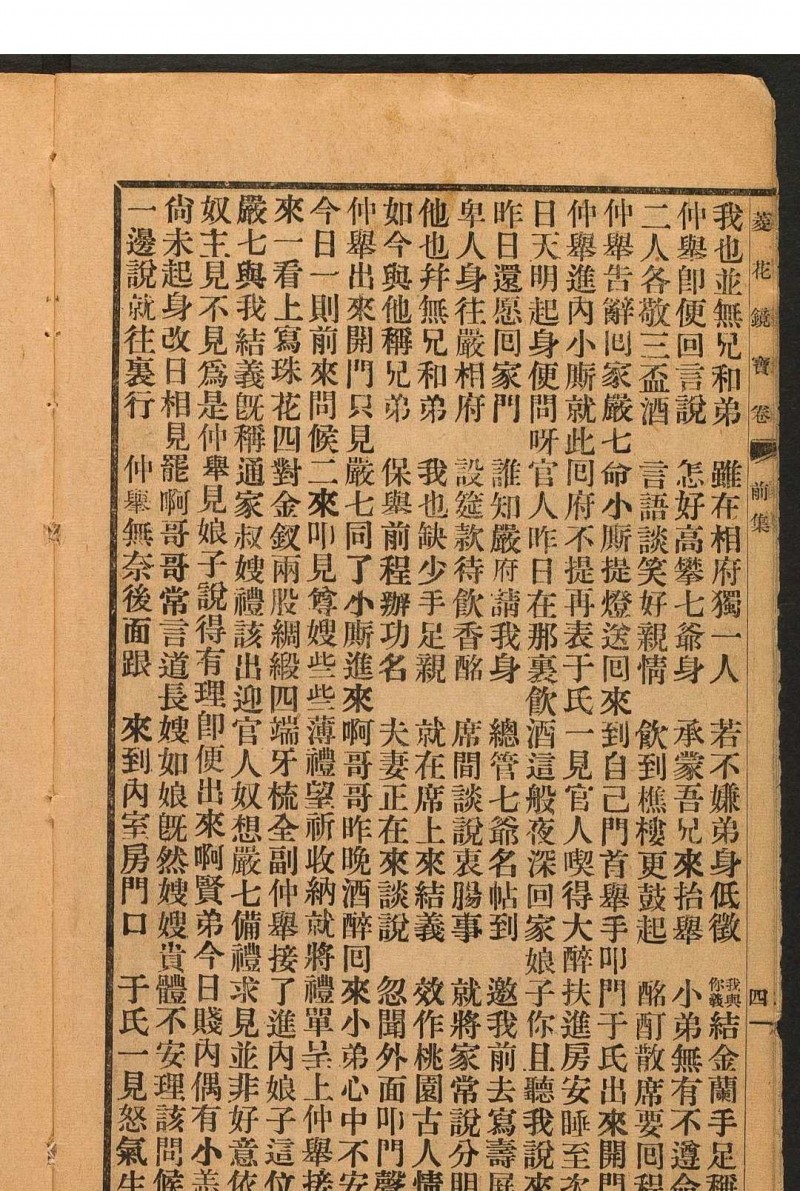 菱花鏡寶卷 前集 四
我也並無兄和弟 雖在相府獨一人 若不嫌弟身低微 我與你義結金蘭手足稱
仲舉卽便回言說 怎好高攀七爺身 承蒙吾兄來抬舉 小弟無有不遵命
二人各敬三盃酒 言語談笑好親情 飲到樵樓更鼓起 酩酊散席要回程
仲舉告辭回家嚴七命小廝提燈送回來到自己門首舉手叩門于氏出來開門
仲舉進內小廝就此回府不提再表于氏一見官人喫得大醉扶進房安睡至次
日天明起身便問呀官人昨日在那裏飲酒這般夜深回家娘子你且聽我說來
昨日還愿回家門 誰知嚴府請我身 總管七爺名帖到 邀我前去寫壽屏
卑人身往嚴相府 設筵款待飲香酩 席間談說衷腸事 就將家常說分明
他也幷無兄和弟 我也缺少手足親 就在席上來結義 效作桃園古人情
如今與他稱兄弟 保舉前程辦功名 夫妻正在來談說 忽聞外面叩門聲
仲舉出來開門只見嚴七同了小廝進來啊哥哥昨晚酒醉回來小弟心中不安
今日一則前來問候二來叩見尊嫂些些薄禮望祈收納就將禮單呈上仲舉接
來一看上寫珠花四對金釵兩股綢緞四端牙梳全副仲舉接了進內娘子這位
嚴七與我結義旣稱通家叔嫂禮該出迎官人奴想嚴七備禮求見並非好意依
奴主見不見爲是仲舉見娘子說得有理卽便出來啊賢弟今日賤內偶有小恙
尙未起身改日相見罷啊哥哥常言道長嫂如娘旣然嫂嫂貴體不安理該問候
一邊說就往裏行 仲舉無奈後面跟 來到內室房門口 于氏一見怒氣生